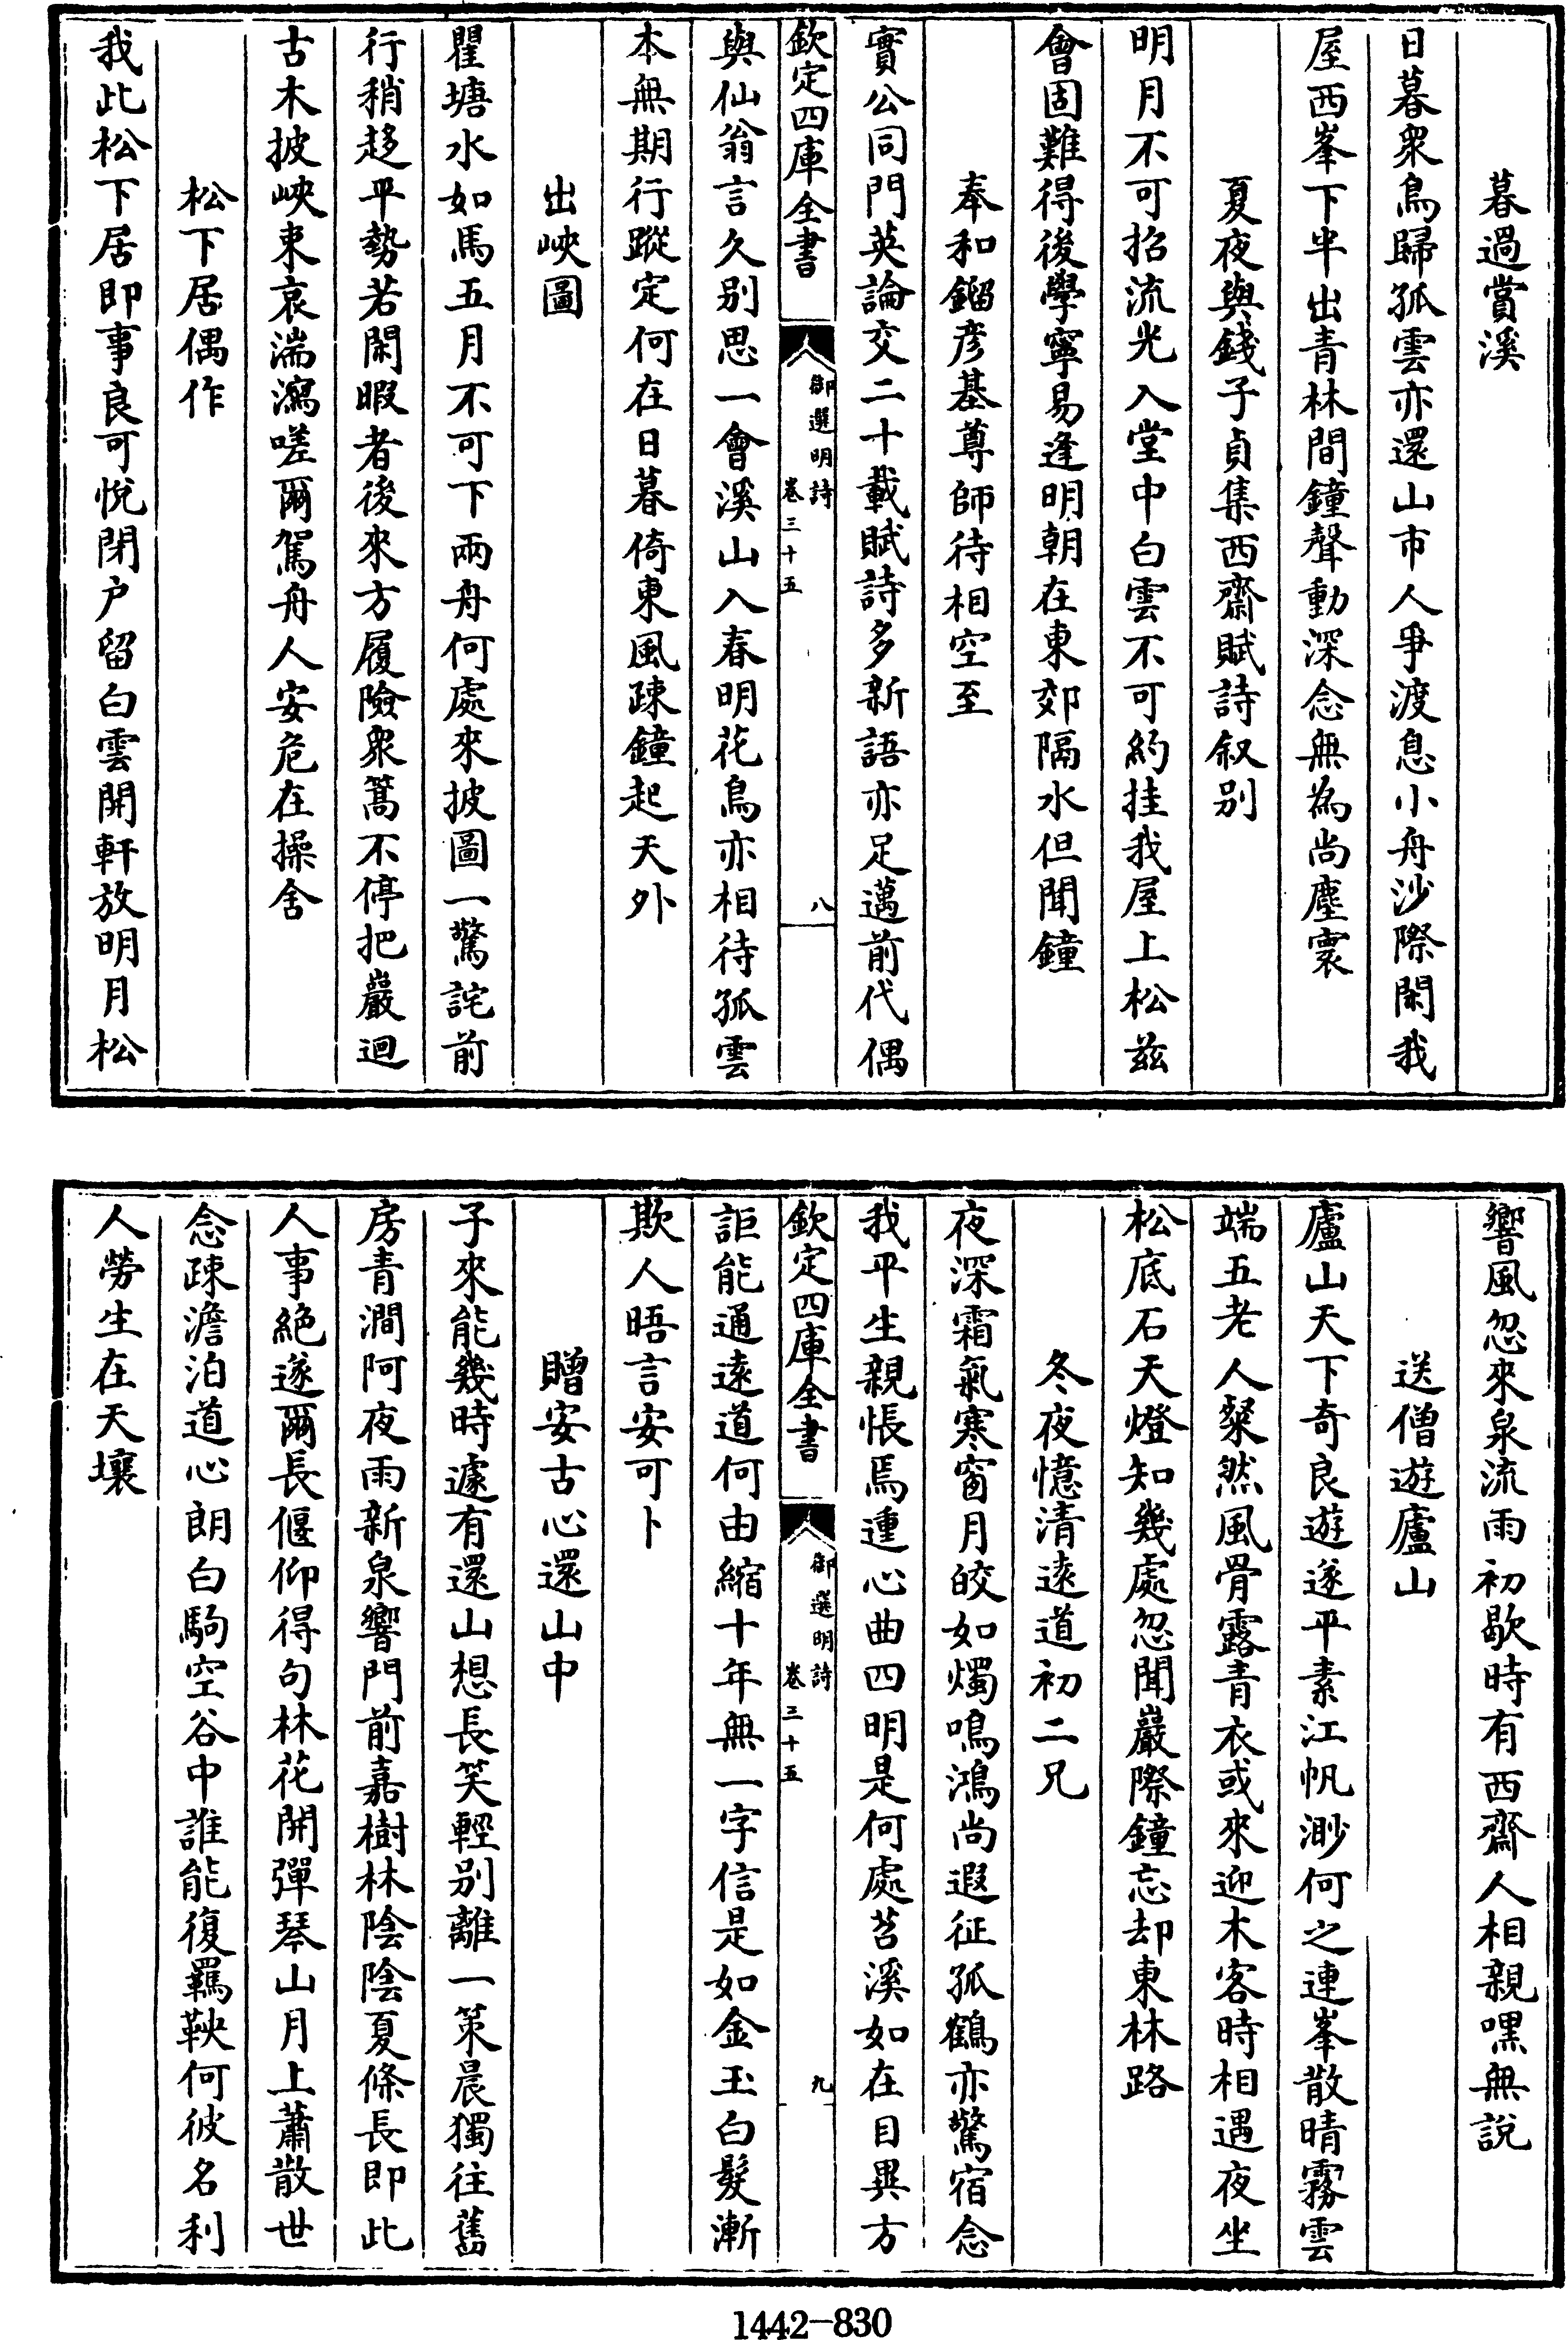 暮過賞溪
日暮衆鳥歸孤雲亦還山市人爭渡息小舟沙際閑我
屋西峯下半出青林間鐘聲動深念無為尚塵寰
夏夜與錢子貞集西齋賦詩叙别
明月不可招流光入堂中白雲不可約挂我屋上松兹
會固難得後學寧易逢明朝在東郊隔水但聞鐘
奉和鎦彦基尊師待相空至
實公同門英論交二十載賦詩多新語亦足邁前代偶
欽定四庫全書
御選明詩
卷三十五
八
與仙翁言久别思一會溪山入春明花鳥亦相待孤雲
本無期行蹤定何在日暮倚東風疎鐘起天外
出峽圖
瞿塘水如馬五月不可下兩舟何處來披圖一驚詫前
行稍趍平勢若閑暇者後來方履險衆篙不停把巖迴
古木披峽束哀湍瀉嗟爾駕舟人安危在操舍
松下居偶作
我此松下居即事良可悅閉户留白雲開軒放明月松
響風忽來泉流雨初歇時有西齋人相親嘿無說
送僧遊廬山
廬山天下奇良遊遂平素江帆渺何之連峯散晴霧雲
端五老人粲然風骨露青衣或來迎木客時相遇夜坐
松底石天燈知幾處忽聞巖際鐘忘却東林路
冬夜憶清遠道初二兄
夜深霜氣寒窗月皎如燭鳴鴻尚遐征孤鶴亦驚宿念
我平生親悵焉連心曲四明是何處苕溪如在目異方
欽定四庫全書
御選明詩
卷三十五
九
詎能通遠道何由縮十年無一字信是如金玉白髮漸
欺人晤言安可卜
贈安古心還山中
子來能幾時遽有還山想長笑輕别離一策晨獨往舊
房青澗阿夜雨新泉響門前嘉樹林陰陰夏條長即此
人事絶遂爾長偃仰得句林花開彈琴山月上蕭散世
念疎澹泊道心朗白駒空谷中誰能復羈鞅何彼名利
人勞生在天壤
1442-830